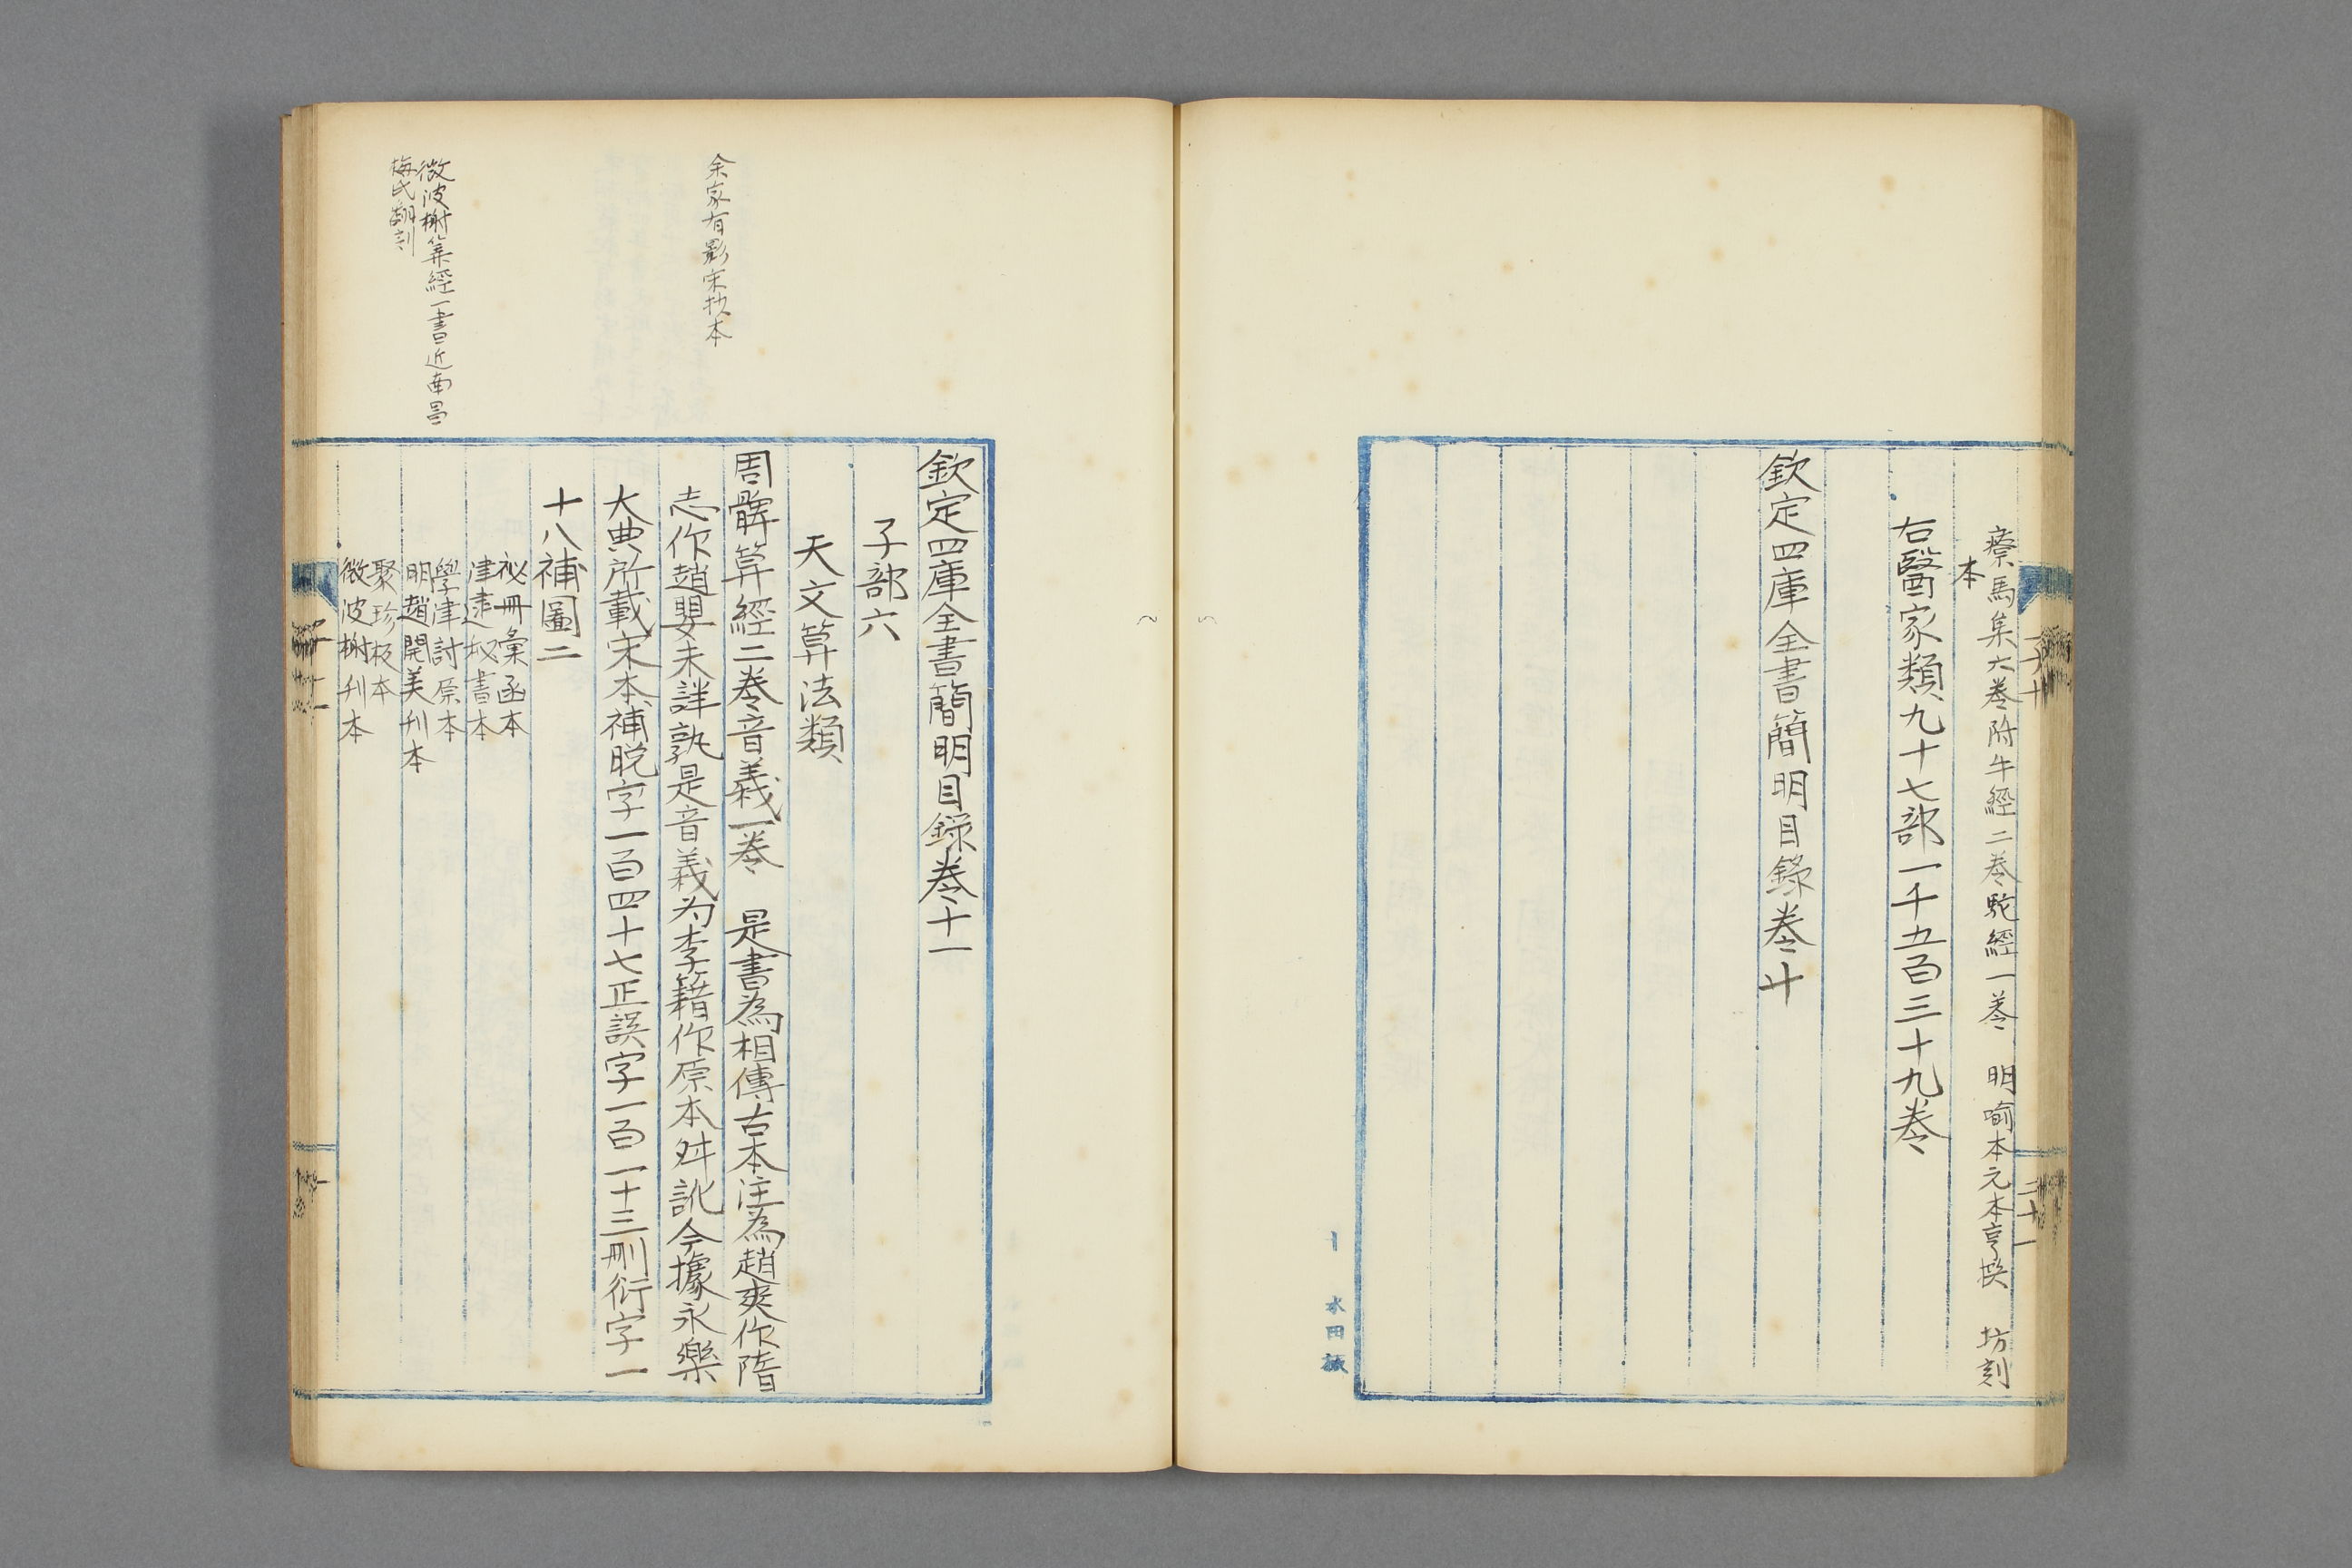 療馬集六卷附牛經二卷駝經一卷　明喻本元本亨撰　坊刻
本
右醫家類九十七部一千五百三十九卷
欽定四庫全書簡明目錄卷十
余家有影宋抄本
微波榭算經一書近南昌
梅氏翻刻
欽定四庫全書簡明目錄卷十一
子部六
天文算法類
周髀算經二卷音義一卷　是書為相傳古本注為趙爽作隋
志作趙嬰未詳孰是音義为李籍作原本舛訛今據永樂
大典所載宋本補脱字一百四十七正誤字一百一十三刪衍字一
十八補圖二
祕冊彙函本
津逮祕書本
學津討原本
明趙開美刋本
聚珍板本
微波榭刋本